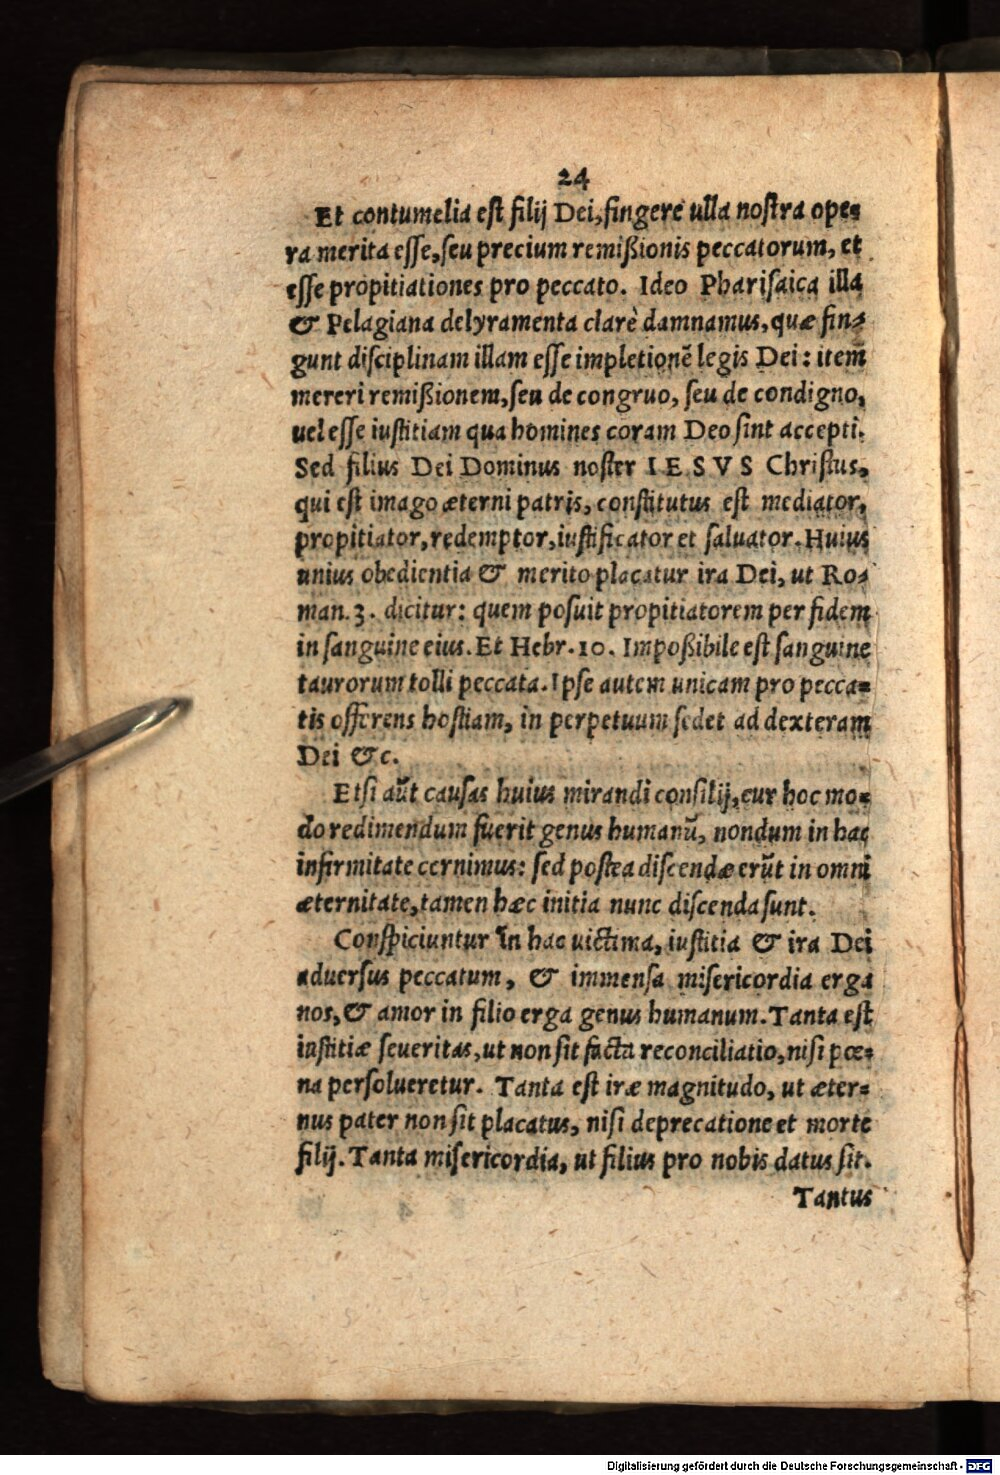 24
Et contumelia est filij Dei, fingere ulla nostra ope-
ra merita esse, seu precium remißionis peccatorum, et
esse propitiationes pro peccato. Ideo Pharisaica illa
& Pelagiana delyramenta clarè damnamus, quæ fin-
gunt disciplinam illam esse impletionẽ legis Dei: item
mereri remißionem, seu de congruo, seu de condigno,
uel esse iustitiam qua homines coram Deo sint accepti.
Sed filius Dei Dominus noster IESVS Christus,
qui est imago æterni patris, constitutus est mediator,
propitiator, redemptor, iustificator et saluator. Huius
unius obedientia & merito placatur ira Dei, ut Ro-
man. 3. dicitur: quem posuit propitiatorem per fidem
in sanguine eius. Et Hebr. 10. Impoßibile est sanguine
taurorum tolli peccata. Ipse autem unicam pro pecca-
tis offerens hostiam, in perpetuum sedet ad dexteram
Dei &c.
Etsi aũt causas huius mirandi consilij, cur hoc mo-
do redimendum fuerit genus humanũ, nondum in hac
infirmitate cernimus: sed postea discendæ erũt in omni
æternitate, tamen hæc initia nunc discenda sunt.
Conspiciuntur in hac uictima, iustitia & ira Dei
aduersus peccatum, & immensa misericordia erga
nos, & amor in filio erga genus humanum. Tanta est
iustitiæ seueritas, ut non sit facta reconciliatio, nisi pœ-
na persolueretur. Tanta est iræ magnitudo, ut æter-
nus pater non sit placatus, nisi deprecatione et morte
filij. Tanta misericordia, ut filius pro nobis datus sit.
Tantus
Digitalisierung gefördert durch die Deutsche Forschungsgemeinschaft - DFG